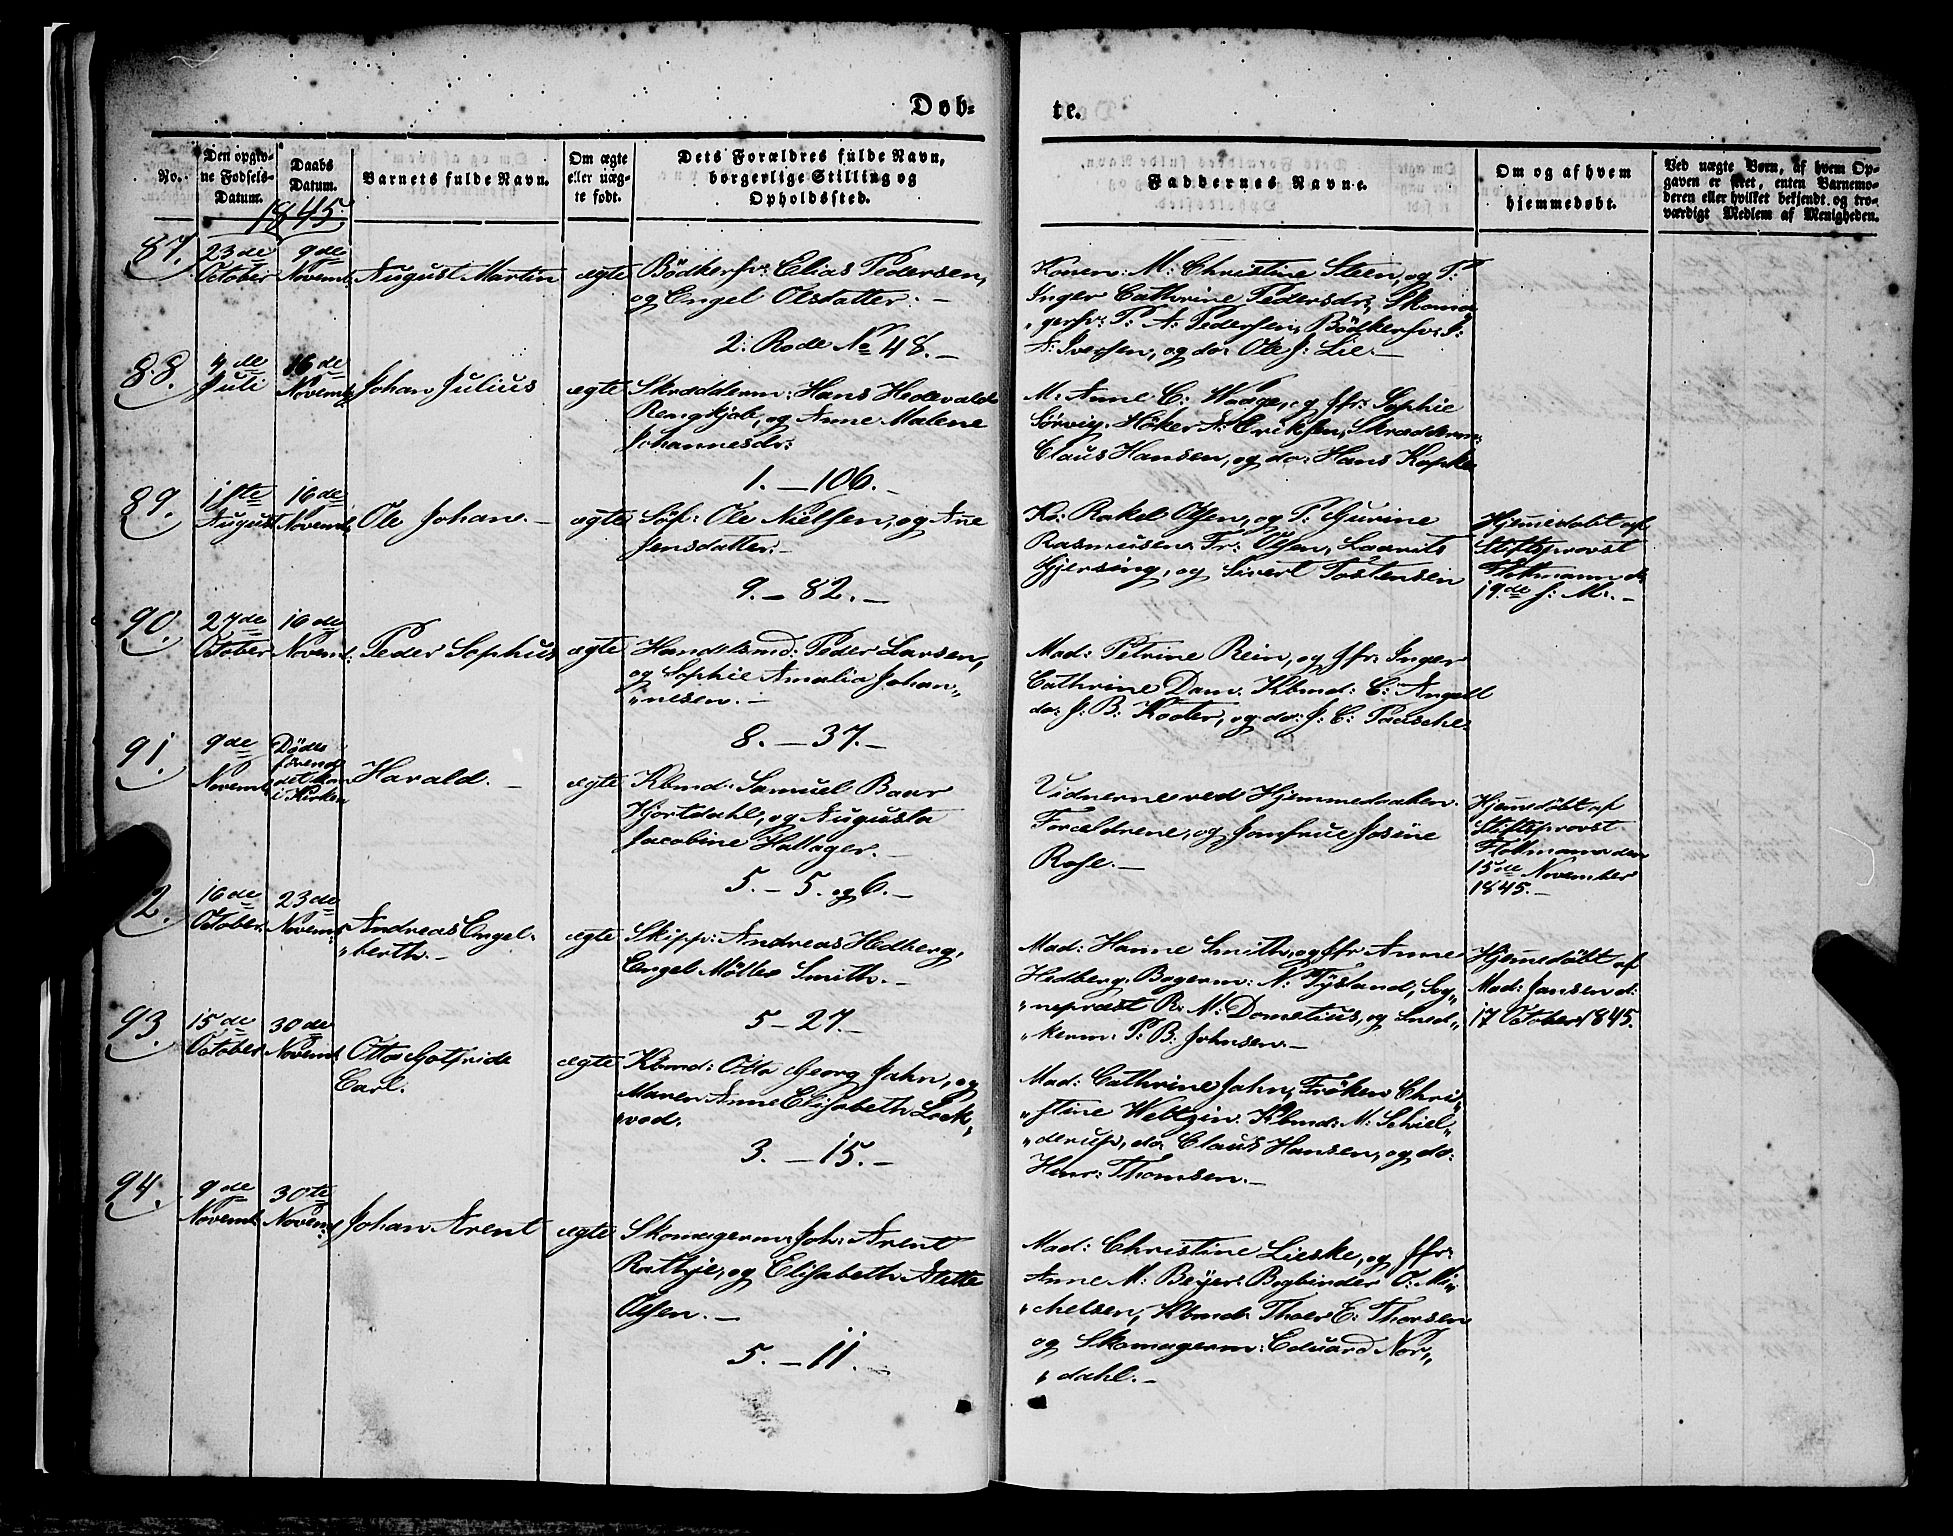 Døb-
te.
No.
Den opgiv-
ne Fødsels-
Datum.
Daabs
Datum.
Barnets fulde Navn.
Om ægte
eller uæg-
te født.
Dets Forældres fulde Navn,
borgerlige Stilling og
Opholdssted.
Faddernes Navne.
Om og af hvem
hjemmedøbt.
Ved uægte Børn, af hvem Op-
gaven er skeet, enten Barnemo-
deren eller hvilket bekjendt og tro-
værdigt Medlem af Menigheden.
1845.
87.
23de
October
9de
Novemb:
August Martin
ægte
Bödkersv: Elias Pedersen,
og Engel Olsdatter. –
2: Rode No 48. –
Konen: M: Christine Steen, og P:
Inger Cathrine Pedersdr, Skoma
„gersv: P: A: Pedersen, Bödkersv: J:
A: Iversen, og do: Ole J: Lie. –
88.
4de
Juli
16de
Novemb
Johan Julius
ægte
Skrædderm: Hans Hedevald
Rengkjøb, og Anne Malene
Johannesdr:
1. – 106. –
M: Anne C: Waage, og Jfr: Sophie
Sörvig, Höker A: Eriksen, Skrædderm:
Claus Hansen, og do: Hans Kopke
89.
1ste
August
16de
Novemb
Ole Johan. –
ægte
Söf: Ole Nielsen, og Ane
Jensdatter. –
9. – 82. –
Ko: Rakel Olsen, og P: Gurine
Rasmusen, Fr: Olsen, Laurits
Gjersing, og Sivert Tostensen
Hjemedøbt af
Stiftsprovst
Flottmann d:
19de s: M: –
90.
27de
October
16de
Novemb:
Peder Sophus
ægte
Handelsmd: Peder Larsen,
og Sophie Amalia Johan„
„nesen. –
8. – 37. –
Mad: Petrine Rein, og Jfr: Inger
Cathrine Dam. Kbmd: C: Angell
do: J: B: Kooter, og do: J: C: Pausche.
91.
9de
Novemb
Döde
förend
det kom
i Kirken
Harald. –
ægte
Kbmd: Samuel Baar
Hjortdahl, og Augusta
Jacobine Hallager. –
5. – 5. og 6. –
Vidnerne ved Hjemmedaaben.
Forældrene, og Jomfrue Josine
Rose. –
Hjemedöbt af
Stiftsprovst
Flottmann den
15de November
1845. –
2.
16de
October
23de
Novemb:
Andreas Engel-
„berth. –
ægte
Skipp: Andreas Hedberg,
Engel Möller Smith. –
5 – 27. –
Mad: Hanne Smith, og Jfr Anne
Hedberg, Bagerm: N: Tysland, Sog„
„nepræst R: M: Dometius, og Sned„
„kerm: P: B: Johnsen. –
Hjemedöbt af
Mad: Jansen d:
17 October 1845.
93.
15de
October
30de
Novemb
Otto Gotfride
Carl.
ægte
Kbmd: Otto Georg Jahn, og
Maren Anne Elisabeth Lock„
„vod.
3. – 15. –
Mad: Cathrine Jahn, Fröken Chri„
„stine Weltzin. Kbmd: M: Schiel„
„derup, do Claus Hansen, og do:
Henr: Thomsen. –
94.
9de
Novemb.
30te
Novemb
Johan Arent
ægte
Skomagerm: Joh: Arent
Rathje, og Elisabeth Mette
Olsen. –
5. – 11. –
Mad: Christine Lieske, og Jfr:
Anne M: Beyer. Bogbinder O: Mi„
„chelsen, Kbmd: Thoer E: Thorsen
og Skomagerm: Eduard Nor„
„dahl. –